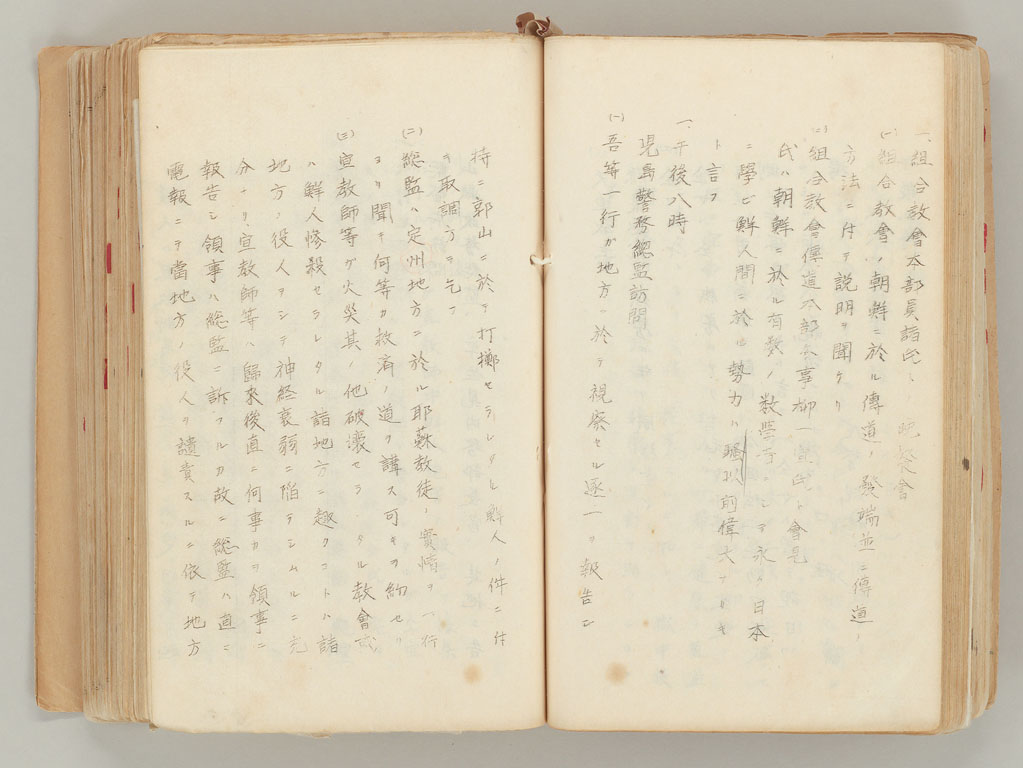 一、組合教會本部員諸氏ト晩餐會
(一)組合教會ノ朝鮮ニ於ル傳道ノ發端並ニ傳道ノ
方法ニ付テ説明ヲ聞ケリ
(二)組合教會傳道本部 事柳一宣氏ト會見
氏ハ朝鮮ニ於ル有数ノ数學 ニシテ永ク日本
ニ學ビ鮮人間ニ於ル勢力ハ騒 以前偉大ナリキ
ト言フ
一、午後八時
児島警務總監訪問
(一)吾等一行ガ地方ニ於テ視察セル逐一ヲ報告シ
特ニ郭山ニ於テ打擲セラレタル鮮人ノ件ニ付
テ取調方ヲ乞フ
(二)総監ハ定州地方ニ於ル耶蘇教徒ノ實情ヲ一行
ヨリ聞キ何等カ救済ノ道ヲ講ス可キヲ約セリ
(三)宣教師等ガ火災其ノ他破壊セラレタル教會或
ハ鮮人惨殺セラレタル諸地方ニ趣クコトハ諸
地方ノ役人ヲシテ神経衰弱ニ陥ラシムルニ充
分ナリ、宣教師等ハ歸来後直ニ何事カヲ領事ニ
報告シ領事ハ総監ニ訴フルガ故ニ総監ハ直ニ
電報ニテ當地方ノ役人ヲ譴責スルニ依テ地方